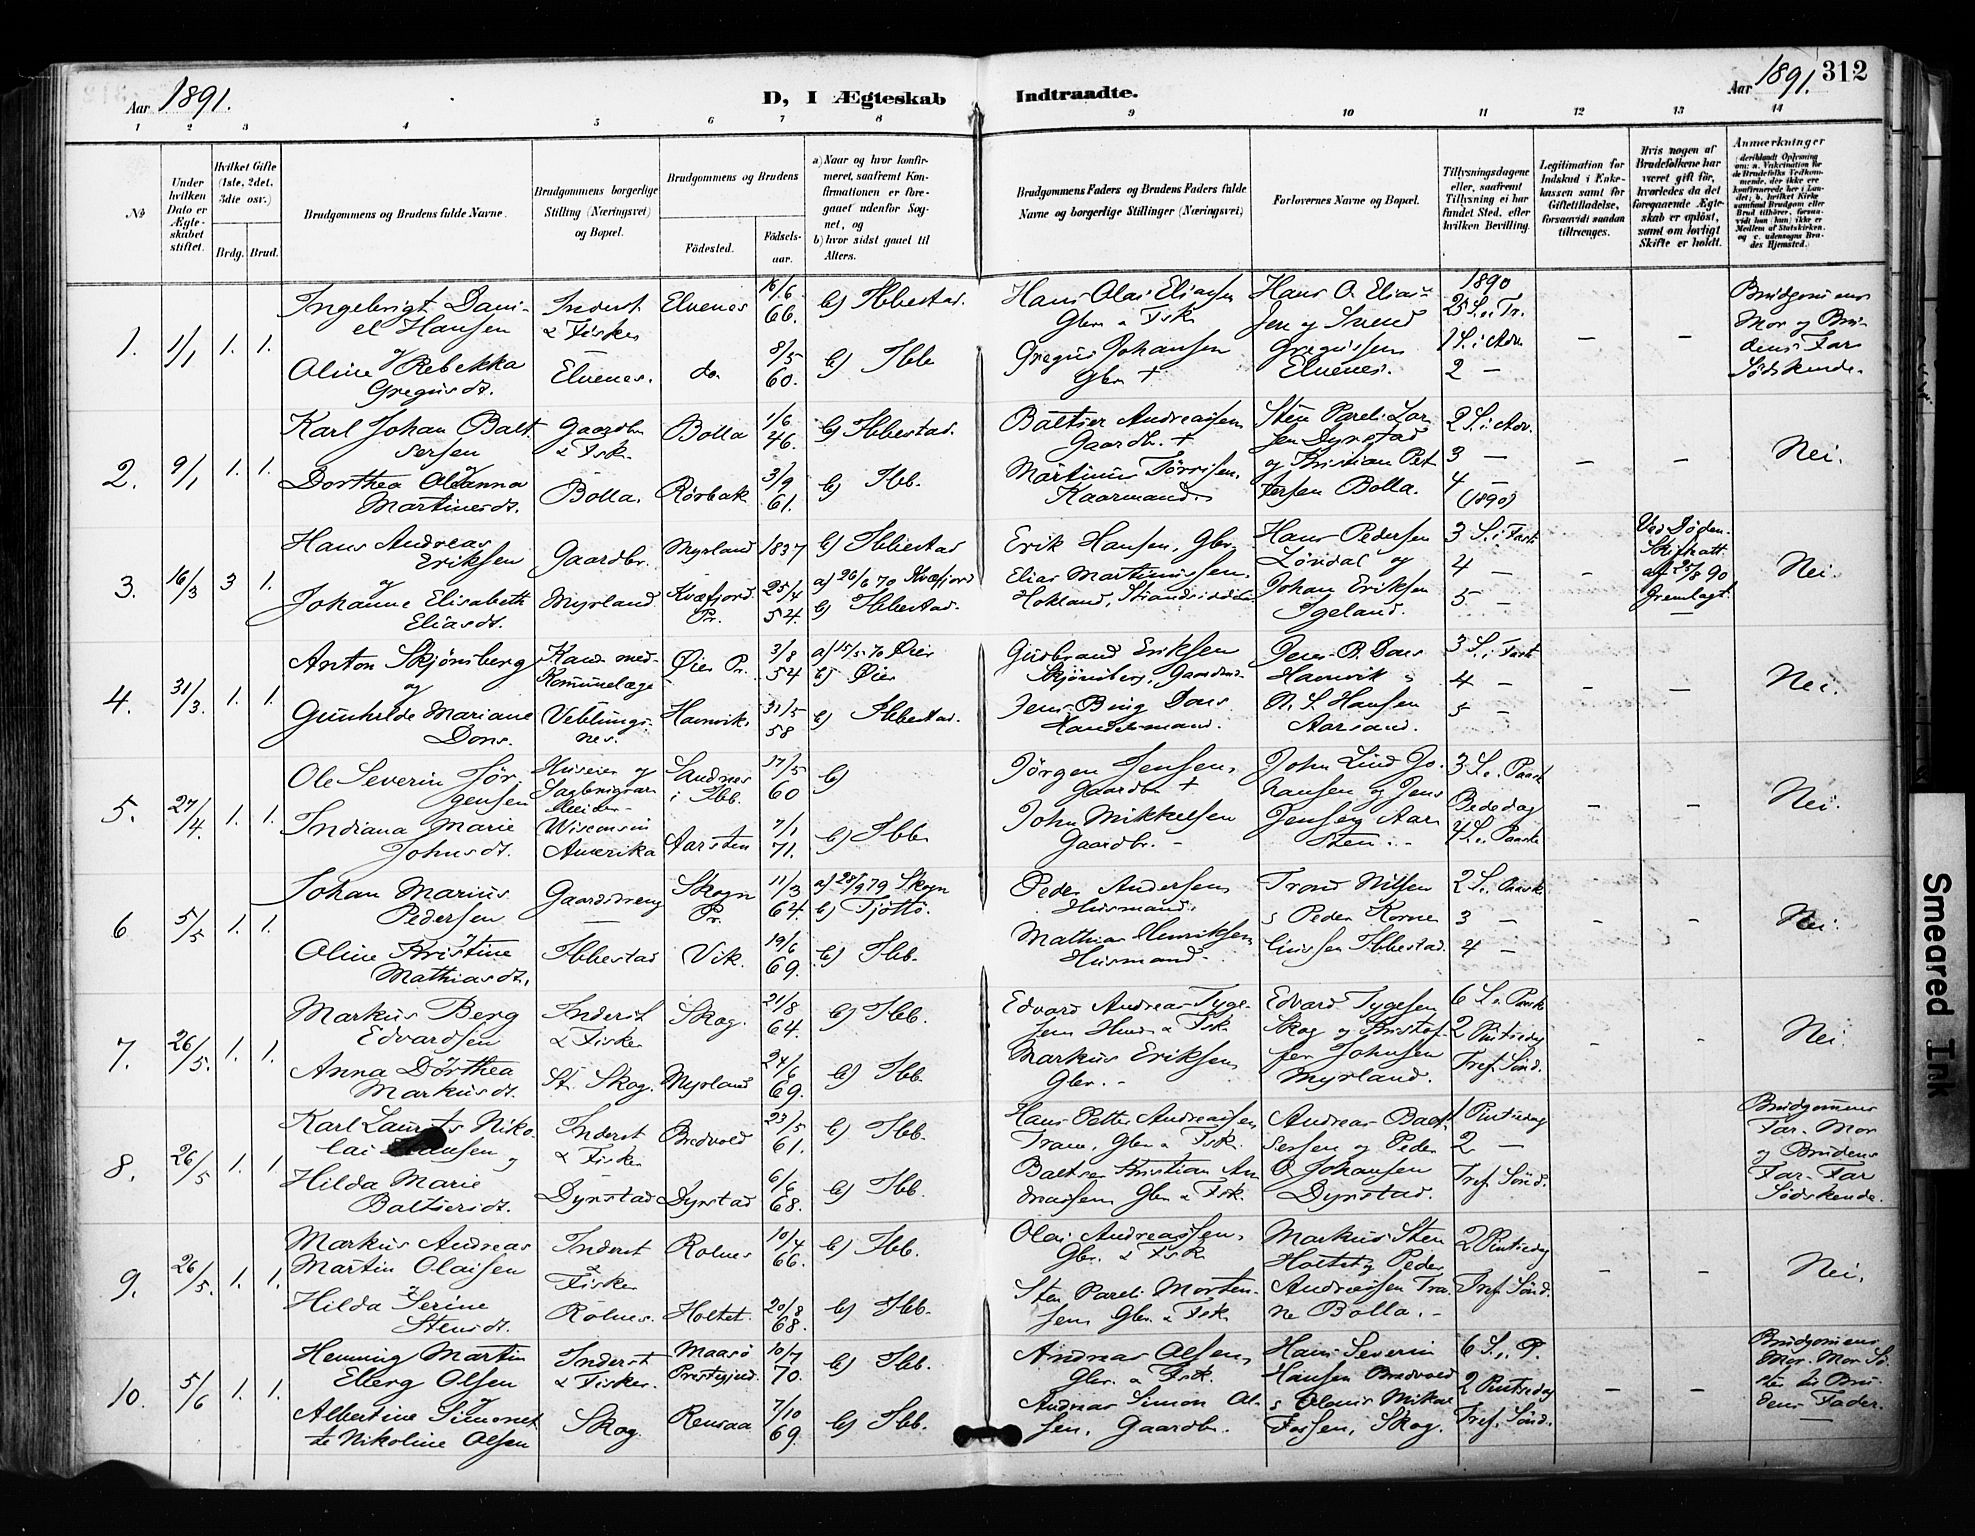 Aar 1891.
D, I Ægteskab Indtraadte.
Aar 1891. 312
1 2 3 4 5 6 7 8 9 10 11 12 13 14
№
Under hvilken Dato er Ægteskabet stiftet.
Hvilket Gifte (1ste, 2det, 3die osv.)
Brdg. Brud.
Brudgommens og Brudens fulde Navne.
Brudgommens borgerlige Stilling (Næringsvei) og Bopæl.
Brudgommens og Brudens
Fødested.
Fødselsaar.
a) Naar og hvor konfirmeret, saafremt Konfirmationen er foregaaet udenfor Sognet, og
b) hvor sidst gaaet til Alters.
Brudgommens Faders og Brudens Faders fulde Navne og borgerlige Stillinger (Næringsvei)
Forlovernes Navne og Bopæl.
Tillysningsdagene eller, saafremt Tillysning ei har fundet Sted, efter hvilken Bevilling.
Legitimation for Indskud i Enkekassen samt for Giftetilladelse, forsaavidt saadan tiltrænges.
Hvis nogen af Brudefolkene har været gift før, hvorledes da det foregaaende Ægteskab er opløst, samt om lovligt Skifte er holdt.
Anmerkninger
1. 1/1 1. 1.
Ingebrigt Daniel Hansen
og
Oline Rebekka Gregusdt.
Inderst & Fisker
Elvenes.
Elvenes
do.
16/6 66.
8/5 60.
b) Ibbestad.
b) Ibb
Hans Olai Eliasen Gbr. & Fsk
Gregus Johansen Gbr. +
Hans O. Eliassen og Svend Gregussen Elvenes.
1890
25 S. e. Tr.
1 S. i Adv.
2 —
– –
Brudgommens Mor og Brudens Far Sødskende.
2. 9/1 1. 1.
Karl Johan Baltsersen
og
Dorthea Oleanna Martinesdt.
Gaardbr. & Fsk.
Bolla.
Bolla
Rørbak
1/6 46.
3/9 61.
b) Ibbestad.
b) Ibb.
Baltser Andreassen Gaardb. +
Martinus Tørrisen, Kaarmand.
Sten Pareli Larsen Dyrstad og Kristian Pettersen Bolla.
2 S. i Adv.
3 —
4 —
(1890)
– –
Nei.
3. 16/3 3 1.
Hans Andreas Eriksen
og
Johanne Elisabeth Eliasdt.
Gaardbr.
Myrland
Myrland
Kvæfjord Pr.
1837
25/4 54.
b) Ibbestad
a) 26/6 70 Kvæfjord
b) Ibbestad.
Erik Hansen, Gbr.
Elias Martinussen, Hokland,
Hans Pedersen Løvdal og Johan Eriksen Igeland.
3 S. i Fast
4 —
5 —
–
Ved Døden. Skifteatt. af 25/8 90 fremlagt.
Nei.
4. 31/3. 1. 1.
Anton Skjønsberg
og
Gunhilde Mariane Dons.
Kand. med. Kommunelæge
Veblungsnes.
Øier Pr.
Havnvik.
3/8 54
31/5 58
a) 15/5 70 Øier
b) Øier
b) Ibbestad.
Gudbrand Eriksen Skjønsberg, Gaardmd.
Jens Bing Dons Handelsmand.
Jens B. Dons Havnvik &
A. S. Hansen Aarsand.
3 S. i Fast
4 —
5 —
– –
Nei.
5. 27/4. 1. 1.
Ole Severin Jørgensen
Indiana Marie Johnsdt.
Huseier og
Wisconsin Amerika
Sandnes i Ibb.
Aarsten
17/5 60
7/1 71.
b)
b) Ibb
Jørgen Jensen, Gaardbr. +
John Mikkelsen Gaardbr. –
John Lind Johansen og Jens Jensen Aarsten. –
3 S. e. Paask
Bededag
4 S. e. Paaske
– –
Nei.
6 5/5 1. 1.
Johan Marius Pedersen
og
Oline Kristine Mathiasdt.
Gaardsdreng
Ibbestad
Skogn Pr.
Vik.
11/3 64.
19/6 69.
a) 28/9 79 Skogn
b) Tjøttø.
b) Ibb.
Peder Andersen, Husmand.
Mathias Henriksen, Husmand.
Trond Nilsen & Peder Korneliussen Ibbestad.
2 S. e. Paask
3 —
4 —
– –
Nei.
7. 26/5. 1. 1.
Markus Berg Edvardsen
og
Anna Dorthea Markusdt.
Inderst & Fisker
St. Skog.
Skog.
Myrland
21/8 64.
24/6 69.
b) Ibb.
b) Ibb.
Edvard Andreas Tygesen Husm. & Fsk.
Markus Eriksen Gbr. –
Edvard Tygesen Skog og Kristoffer Johnsen Myrland.
6 S. e. Paask
2 Pintsedag
Tref. Sønd.
– –
Nei.
8. 26/5 1. 1.
Karl Laurits Nikolai Hansen
og
Hilda Marie Baltsersdt.
Inderst & Fisker
Dyrstad
Bredvold
Dyrstad
23/5 61.
6/6 68.
b) Ibb.
b) Ibb.
Hans Petter Andreassen Trane, Gbr. & Fsk.
Baltser Kristian Andreassen Gbr. & Fsk.
Andreas Baltsersen og Peder O. Johansen Dyrstad.
1 Pintsedag
2 —
Tref. Sønd.
Brudgommens Far-Mor og Brudens Far-Far Sødskende.
9. 26/5. 1. 1.
Markus Andreas Martin Olaisen
&
Hilda Serine Stensdt.
Inderst & Fisker
Rolnes.
Rolnes
Holtet.
10/4 66.
20/8 68.
b) Ibb.
b) Ibb.
Olai Andreassen, Gbr. & Fsk
Sten Pareli Mortensen Gbr. & Fsk.
Markus Sten Holtet og Peder Andreassen Trane Bolla. –
2 Pintsedag
Tref. Sønd.
– –
Nei.
10. 5/6 1. 1.
Henning Martin Elberg Olsen
og
Albertine Simonette Nikoline Olsen
Inderst & Fisker.
Skog
Maasø Prestegjeld.
Rensaa
10/7 70.
7/10 69.
b) Ibb.
b) Ibb.
Andreas Olsen, Gbr. & Fsk.
Andreas Simon Olsen, Gaardbr.
Hans Severin Hansen Bredvold & Olaus Mikal Fossen, Skog.
6 S. e. P.
2 Pintsedag
Tref. Sønd.
– –
Brudgommens Mor-Mor Søster til Brudens Fader.
Smeared Ink